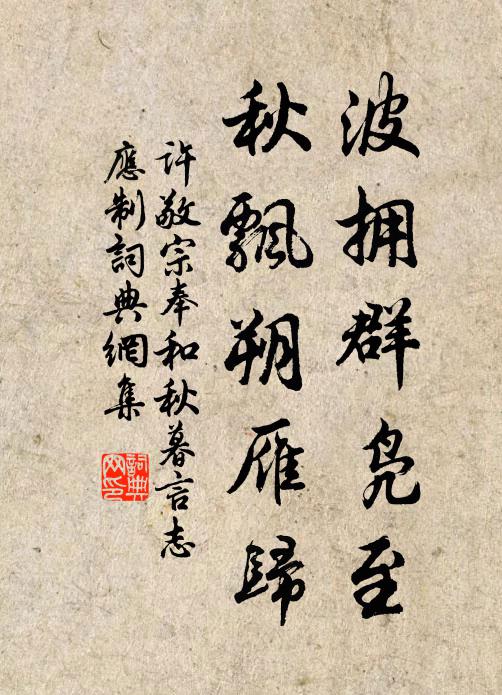 波拥群凫至
秋飘朔雁歸
许敬宗奉和秋暮言志
應制詞典網集
詞典网印